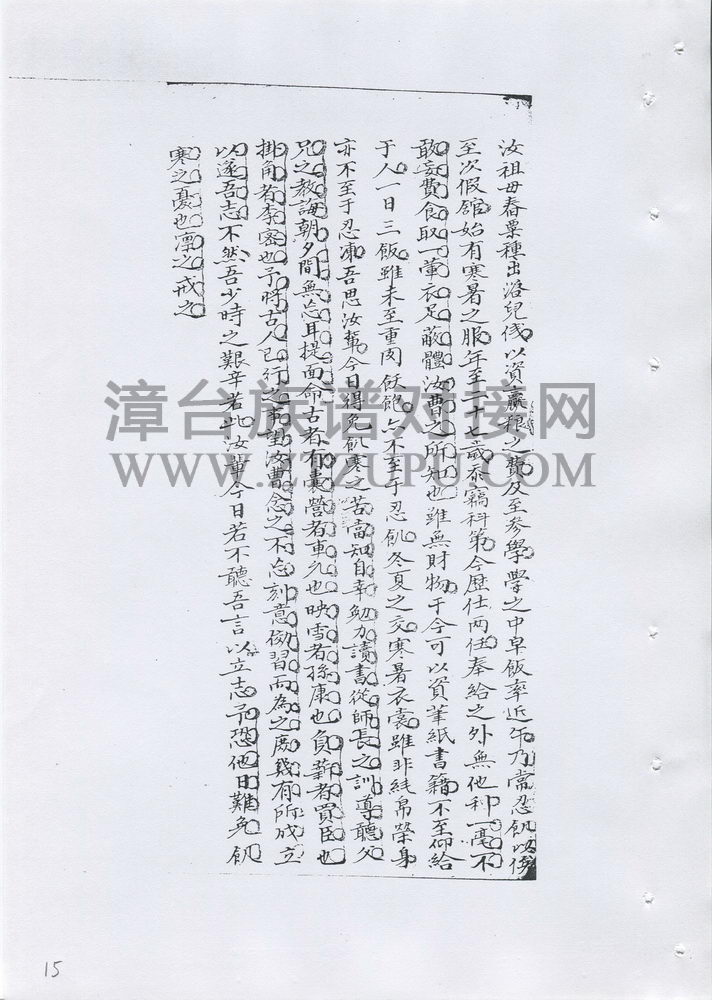 汝祖母舂粟種出洛兒伐以資贏粮之費及至参學學之中早飯率近午乃嘗忍飢以俟
至次假舘始有寒暑之服年至二十七歲忝竊科第今歷仕两任奉給之外無他利一毫不
敢妄費食取一葷衣足蔽體汝曹之所知也雖無財物于今可以資筆紙書籍不至仰給
于人一日三飯雖未至重肉飫飽亦不至于忍飢冬夏之交寒暑衣裳雖非純帛榮身
亦不至于忍凍吾思汝輩今日得免飢寒之苦當知自幸勉力讀書從師長之訓導聽父
兄之教誨朝夕間無忘耳提面命古者有囊營者車允也映雪者孫康也負薪者買臣也
掛角者李密也予將古人已行之事望汝曹念之不忘刻意勤習而為之庶幾有所成立
以遂吾志不然吾少時之艱辛若此汝輩今日若不聽吾言以立志予恐他日難免飢
寒之憂也凛之戒之
漳台族谱对接网
WWW.ZTZUPU.COM
15